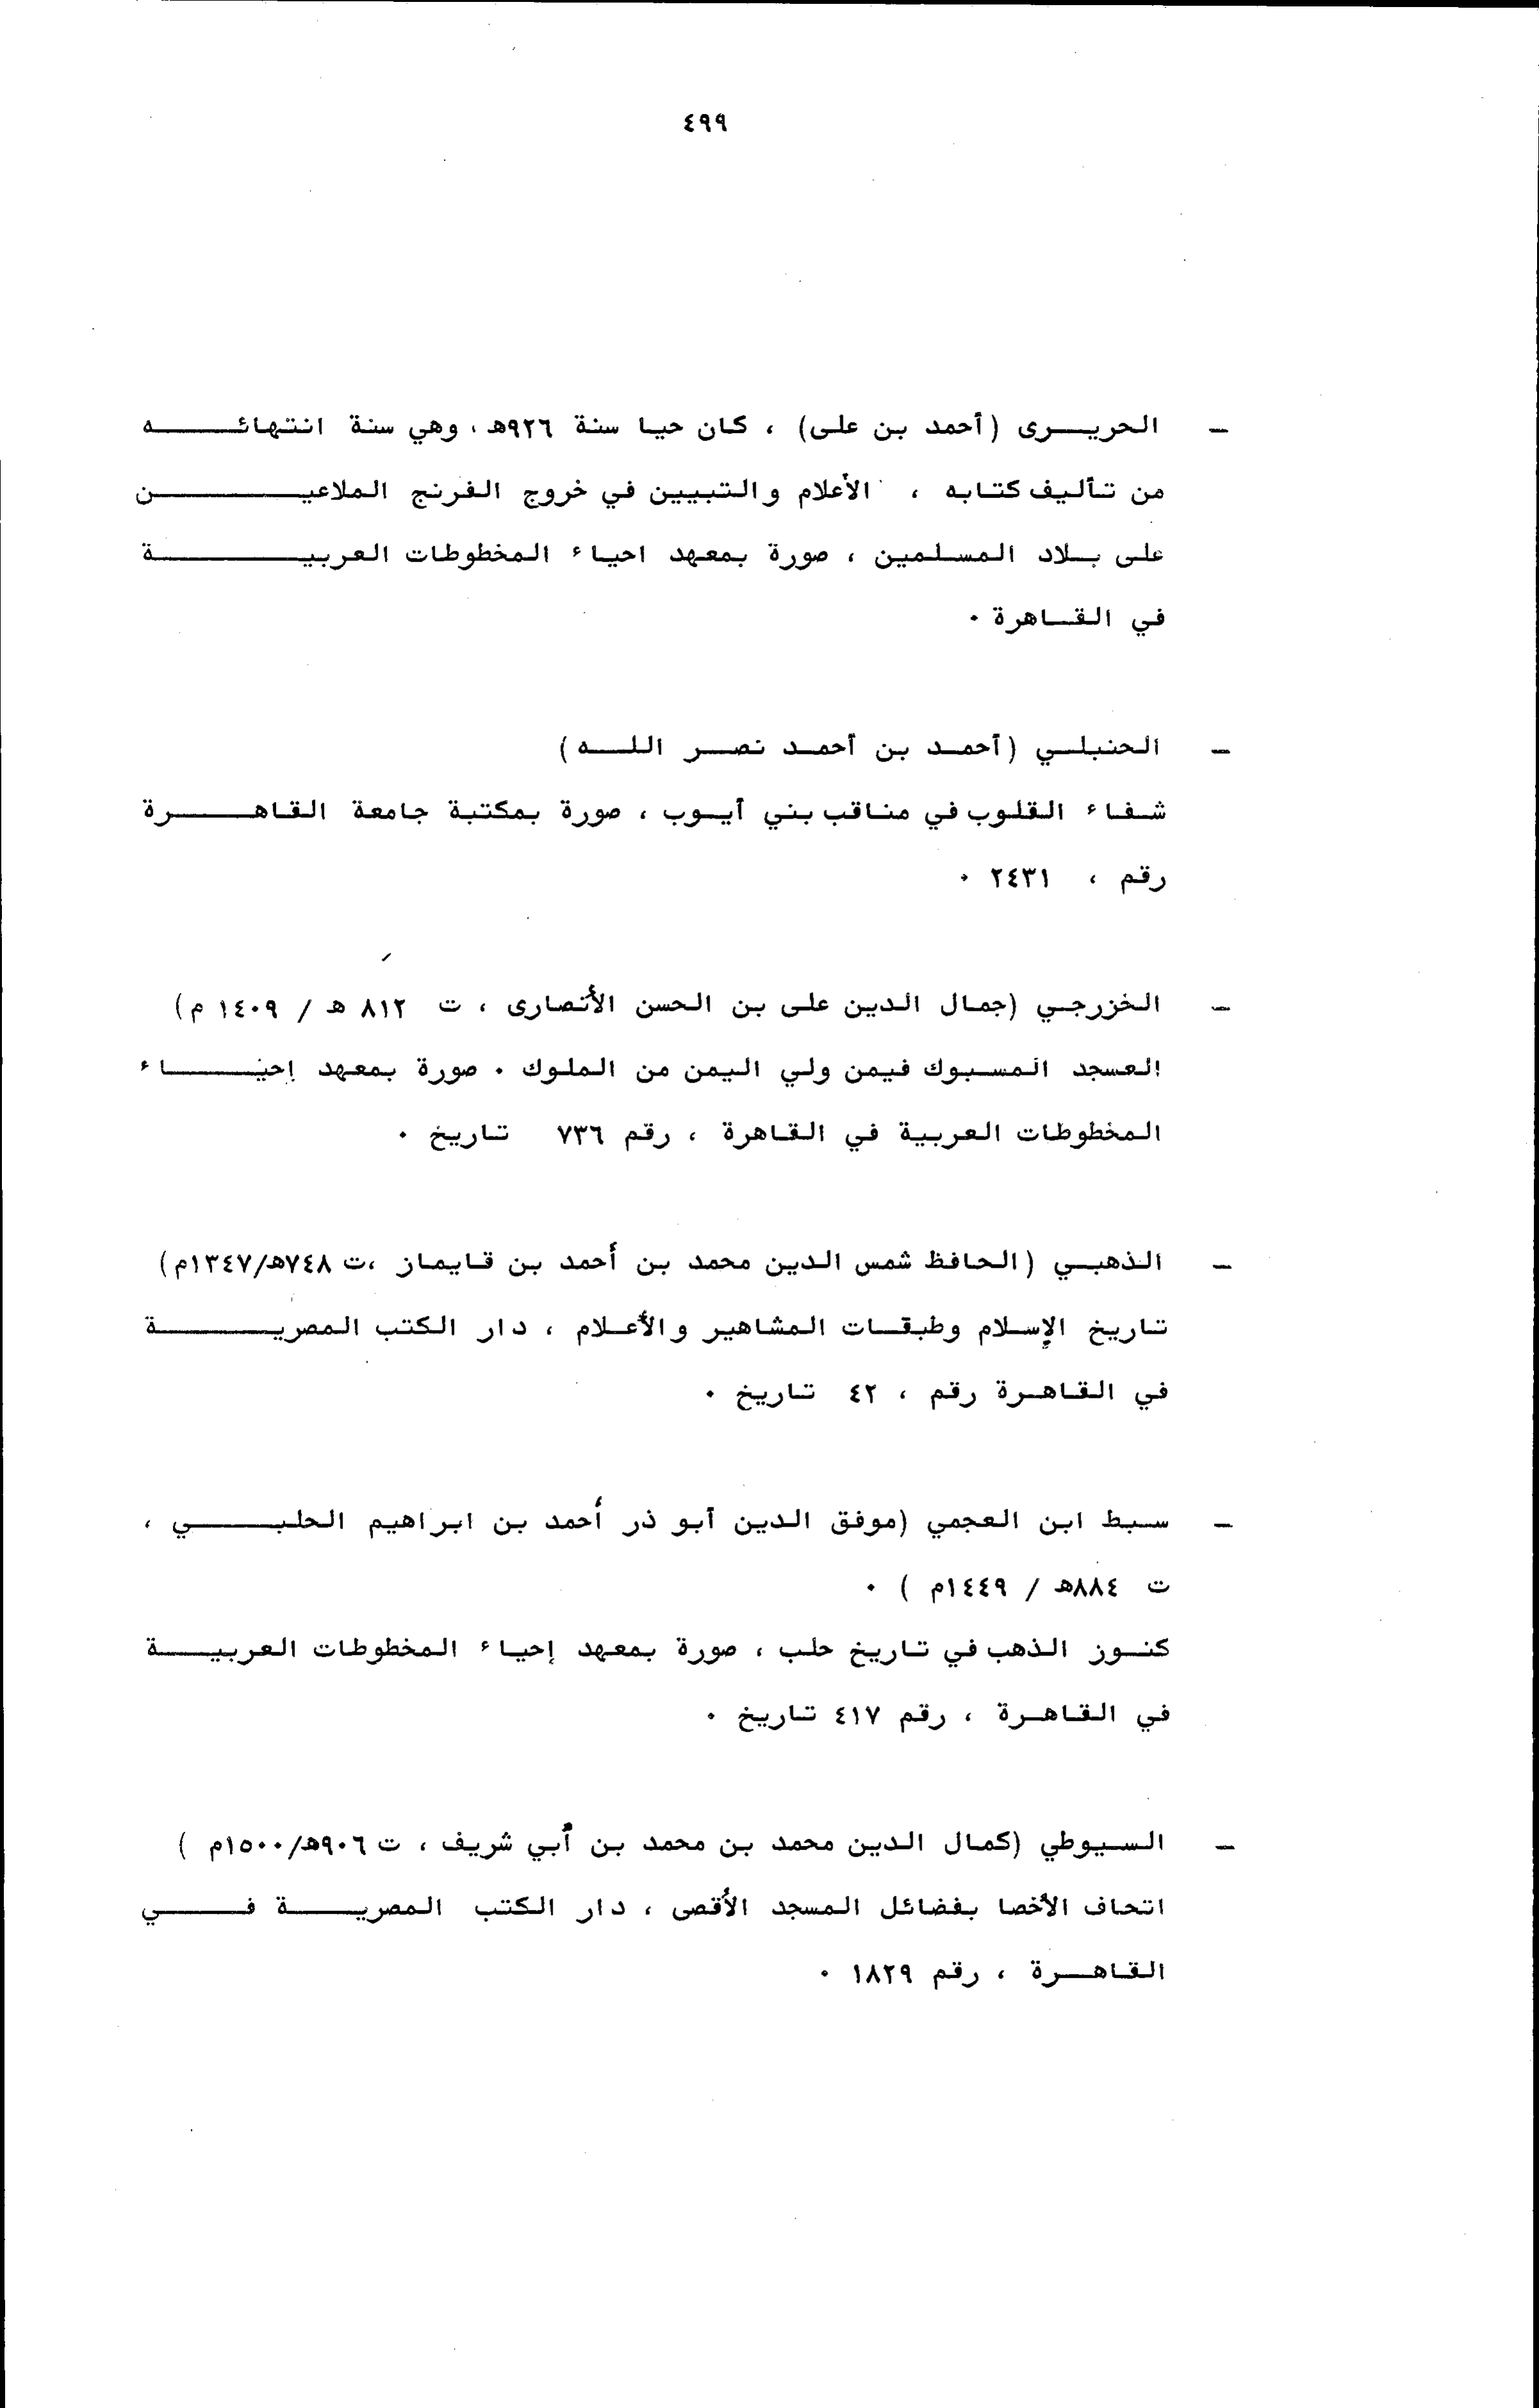 ٤٩٩
ـ الحريرى (أحمد بن على) ، كان حيا سنة ٩٢٦هـ ، وهي سنة انتهائه
من تأليف كتابه ، الأعلام والتبيين في خروج الفرنج الملاعين
على بلاد المسلمين ، صورة بمعهد احياء المخطوطات العربية
في القاهرة ٠
ـ الحنبلي (أحمد بن أحمد نصر الله)
شفاء القلوب في مناقب بني أيوب ، صورة بمكتبة جامعة القاهرة
رقم ، ٢٤٣١ ٠
ـ الخزرجي (جمال الدين على بن الحسن الأنصارى ، ت ٨١٢ هـ / ١٤٠٩ م)
العسجد المسبوك فيمن ولي اليمن من الملوك ٠ صورة بمعهد إحياء
المخطوطات العربية في القاهرة ، رقم ٧٣٦ تاريخ ٠
ـ الذهبي (الحافظ شمس الدين محمد بن أحمد بن قايماز ،ت ٧٤٨هـ/١٣٤٧م)
تاريخ الإسلام وطبقات المشاهير والأعلام ، دار الكتب المصرية
في القاهرة رقم ، ٤٢ تاريخ ٠
ـ سبط ابن العجمي (موفق الدين أبو ذر أحمد بن ابراهيم الحلبي ،
ت ٨٨٤هـ / ١٤٤٩م ) ٠
كنوز الذهب في تاريخ حلب ، صورة بمعهد إحياء المخطوطات العربية
في القاهرة ، رقم ٤١٧ تاريخ ٠
ـ السيوطي (كمال الدين محمد بن محمد بن أبي شريف ، ت ٩٠٦هـ/١٥٠٠م )
اتحاف الأخصا بفضائل المسجد الأقصى ، دار الكتب المصرية في
القاهرة ، رقم ١٨٢٩ ٠